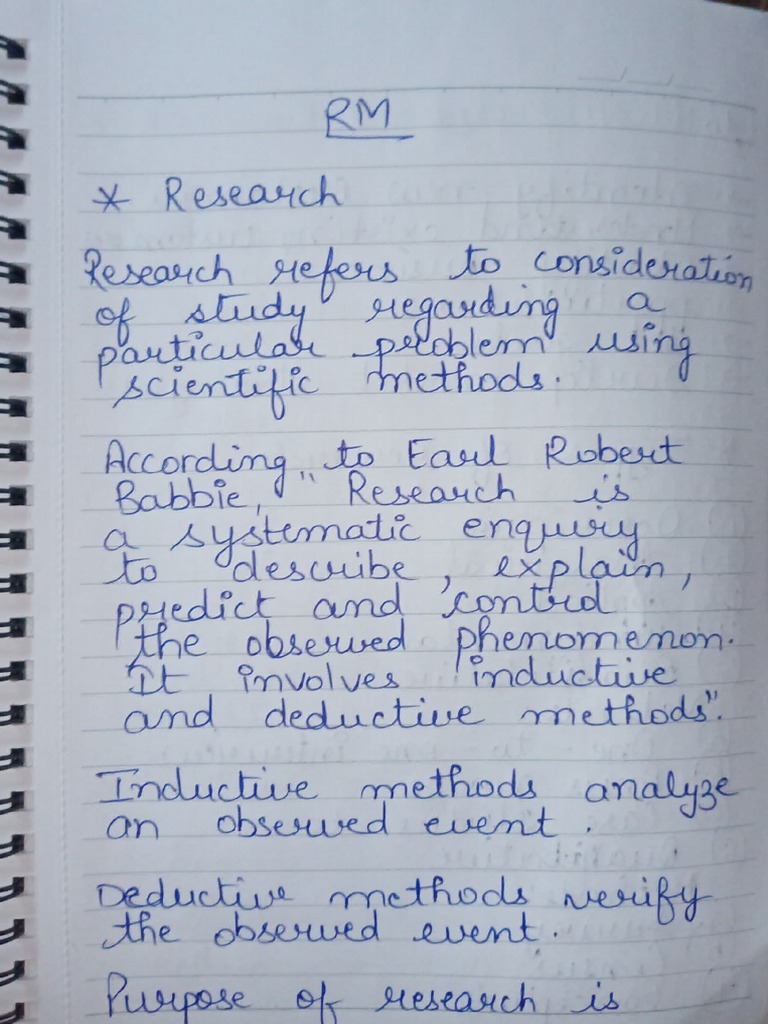 RM
* Research
Research refers to consideration
of study regarding a
particular problem using
scientific methods.
According to Earl Robert
Babbie, " Research is
a systematic enquiry
to describe, explain,
predict and control
the observed phenomenon.
It involves inductive
and deductive methods".
Inductive methods analyze
an observed event.
Deductive methods verify
the observed event.
Purpose of research is